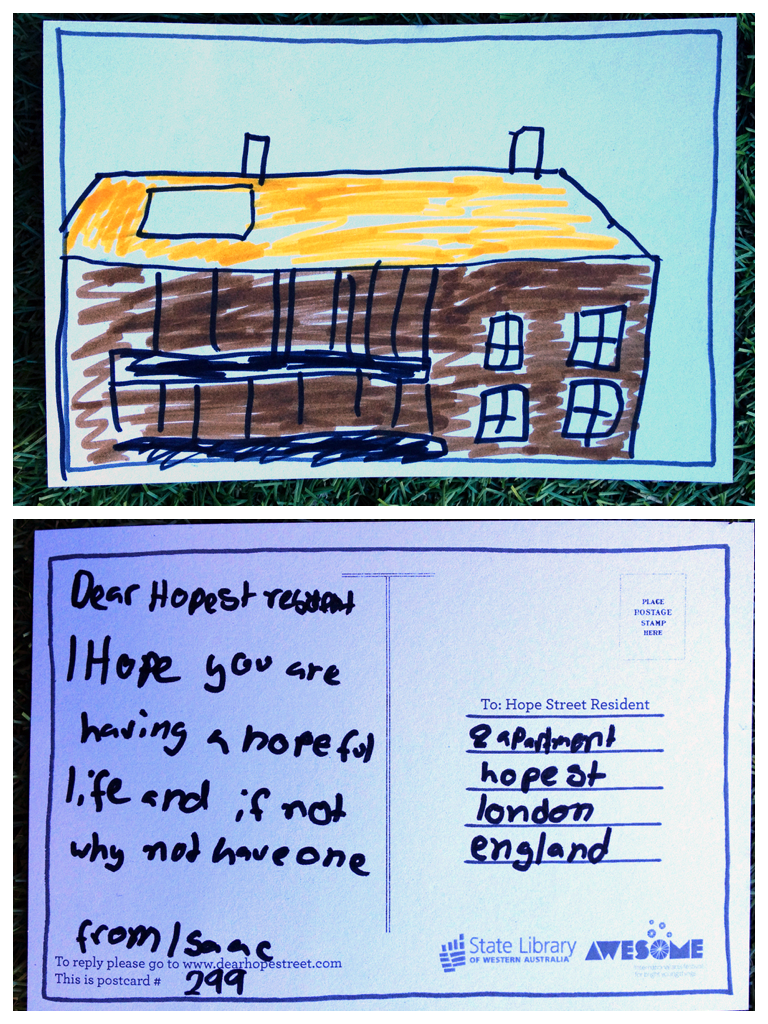 Dear Hopest resident
I Hope you are
having a hopeful
life and if not
why not have one
from Isaac
To reply please go to www.dearhopestreet.com
This is postcard # 299
PLACE
POSTAGE
STAMP
HERE
To: Hope Street Resident
8 apartment
hope st
london
england
State Library
OF WESTERN AUSTRALIA
AWESOME